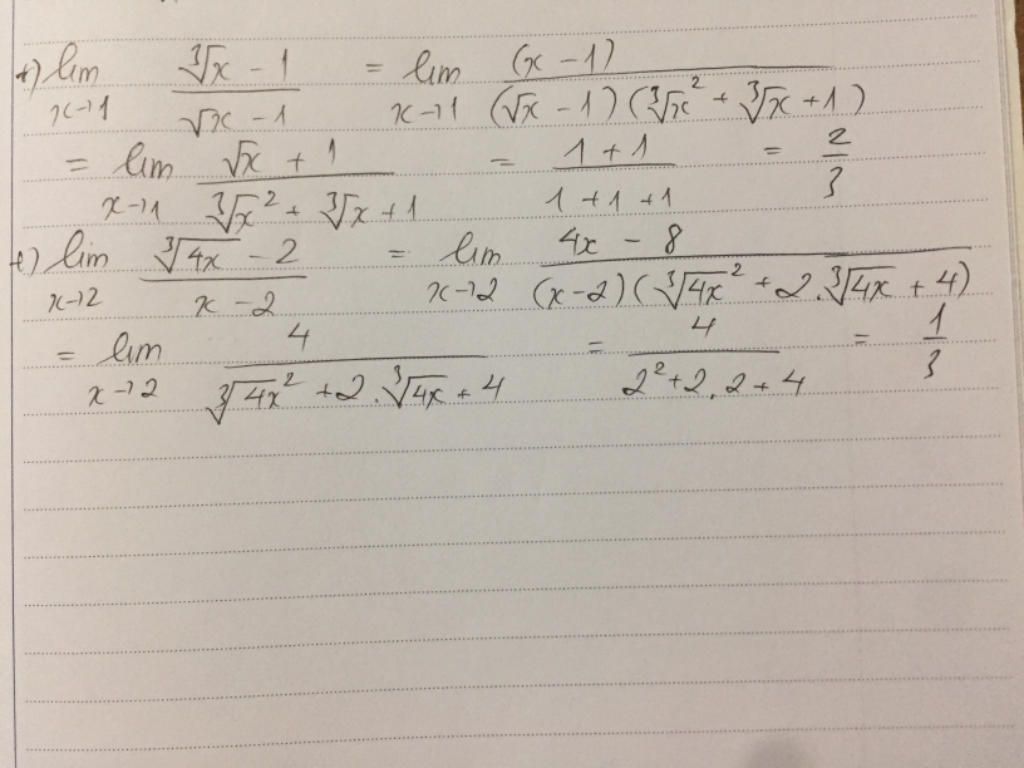 +) lim x→1 (∛x - 1)/(√x - 1) = lim x→1 (x - 1)/((√x - 1)(∛x² + ∛x + 1))
= lim x→1 (√x + 1)/(∛x² + ∛x + 1) = (1 + 1)/(1 + 1 + 1) = 2/3
+) lim x→2 (∛4x - 2)/(x - 2) = lim x→2 (4x - 8)/((x - 2)(∛4x² + 2.∛4x + 4))
= lim x→2 4/(∛4x² + 2.∛4x + 4) = 4/(2² + 2.2 + 4) = 1/3